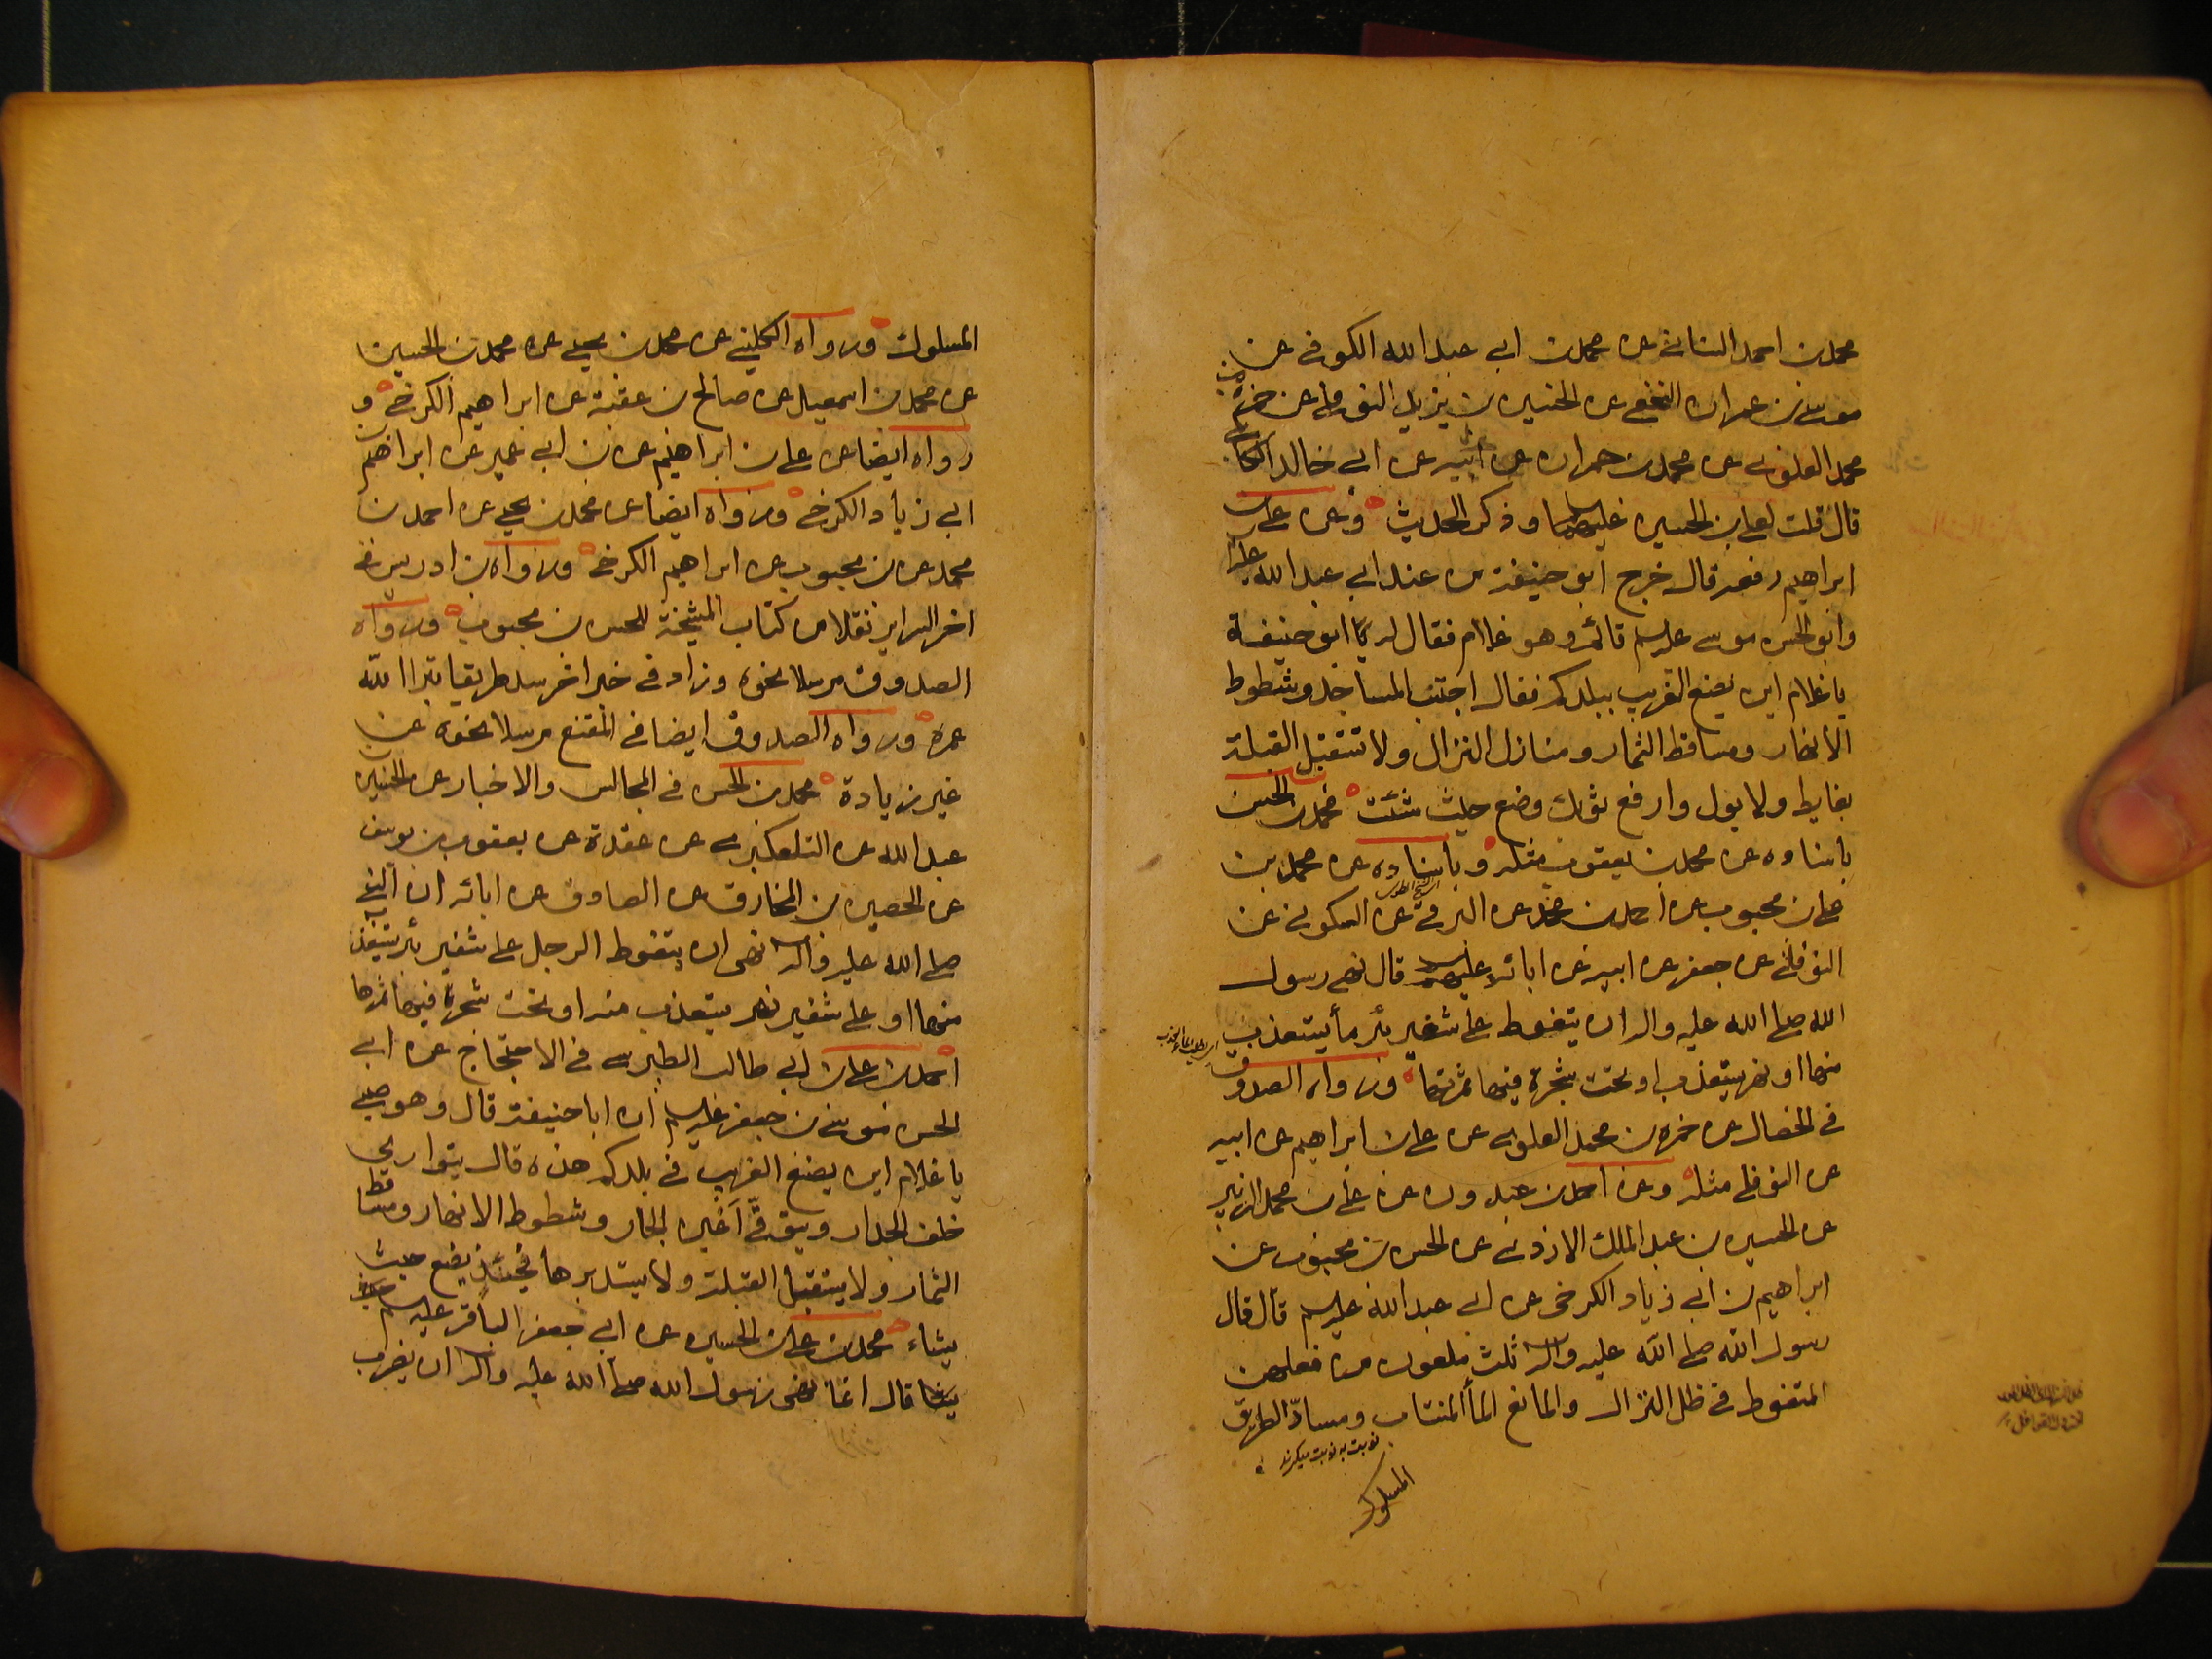 محمد بن احمد السنانى عن محمد بن ابى عبد الله الكوفى عن
موسى بن عمران النخعى عن الحسين بن يزيد النوفلى عن حمزة بن
محمد العلوى عن محمد بن حمران عن ابيه عن ابى خالد الكابلى
قال قلت لعلى بن الحسين عليهما وذكر الحديث وعن على بن
ابراهيم رفعه قال خرج ابو حنيفة من عند ابى عبد الله عليه السلام
وابو الحسن موسى عليه السلام قائم وهو غلام فقال له ابو حنيفة
يا غلام اين يضع الغريب ببلدكم فقال اجتنب المساجد وشطوط
الانهار ومساقط الثمار ومنازل النزال ولا تستقبل القبلة
بغايط ولا بول وارفع ثوبك وضع حيث شئت محمد بن الحسن
باسناده عن محمد بن يعقوب مثله وباسناده عن محمد بن
على بن محبوب عن احمد بن محمد عن البرقى عن السكونى عن
النوفلى عن جعفر عن ابيه عن ابائه عليهم السلام قال نهى رسول
الله صلى الله عليه واله ان يتغوط على شفير بئر ماء يستعذب
منها او نهر يستعذب او تحت شجرة فيها ثمرتها ورواه الصدوق
فى الخصال عن حمزة بن محمد العلوى عن على بن ابراهيم عن ابيه
عن النوفلى مثله وعن احمد بن عبدون عن على بن محمد الزبير
عن الحسين بن عبد الملك الازدى عن الحسن بن محبوب عن
ابراهيم بن ابى زياد الكرخى عن ابى عبد الله عليه السلام قال قال
رسول الله صلى الله عليه واله ثلث ملعون من فعلهن
المتغوط فى ظل النزال والمانع الماء المنتاب وساد الطريق
نوبت به نوبت ميكرند
المسلوك
المسلوك ورواه الكلينى عن محمد بن يحيى عن محمد بن الحسين
عن محمد بن اسمعيل عن صالح بن عقبة عن ابراهيم الكرخى و
رواه ايضا عن على بن ابراهيم عن بن ابى عمير عن ابراهيم بن
ابى زياد الكرخى ورواه ايضا عن محمد بن يحيى عن احمد بن
محمد عن بن محبوب عن ابراهيم الكرخى ورواه بن ادريس فى
اخر السراير نقلا من كتاب المشيخة للحسن بن محبوب ورواه
الصدوق مرسلا نحوه وزاد فى خبر اخر من سد طريقا بتر الله
عمره ورواه الصدوق ايضا فى المقنع مرسلا نحوه من
غير زيادة محمد بن الحسن فى المجالس والاخبار عن الحسين بن
عبد الله عن التلعكبرى عن عقدة عن يعقوب بن يوسف
عن الحصين بن المخارق عن الصادق عن ابائه ان النبى
صلى الله عليه واله نهى ان يتغوط الرجل على شفير بئر يستعذب
منها او على شفير نهر يستعذب منه او تحت شجرة فيها ثمرها
احمد بن على بن ابى طالب الطبرسى فى الاحتجاج عن ابى
الحسن موسى بن جعفر عليه السلام ان ابا حنيفة قال وهو صبى
يا غلام اين يضع الغريب فى بلدكم هذه قال يتوارى
خلف الجدار ويتوقى اعين الجار وشطوط الانهار ومساقط
الثمار ولا يستقبل القبلة ولا يستدبرها فحينئذ يضع حيث
يشاء محمد بن على بن الحسين عن ابى جعفر الباقر عليه السلام
قال انما نهى رسول الله صلى الله عليه واله ان يضرب